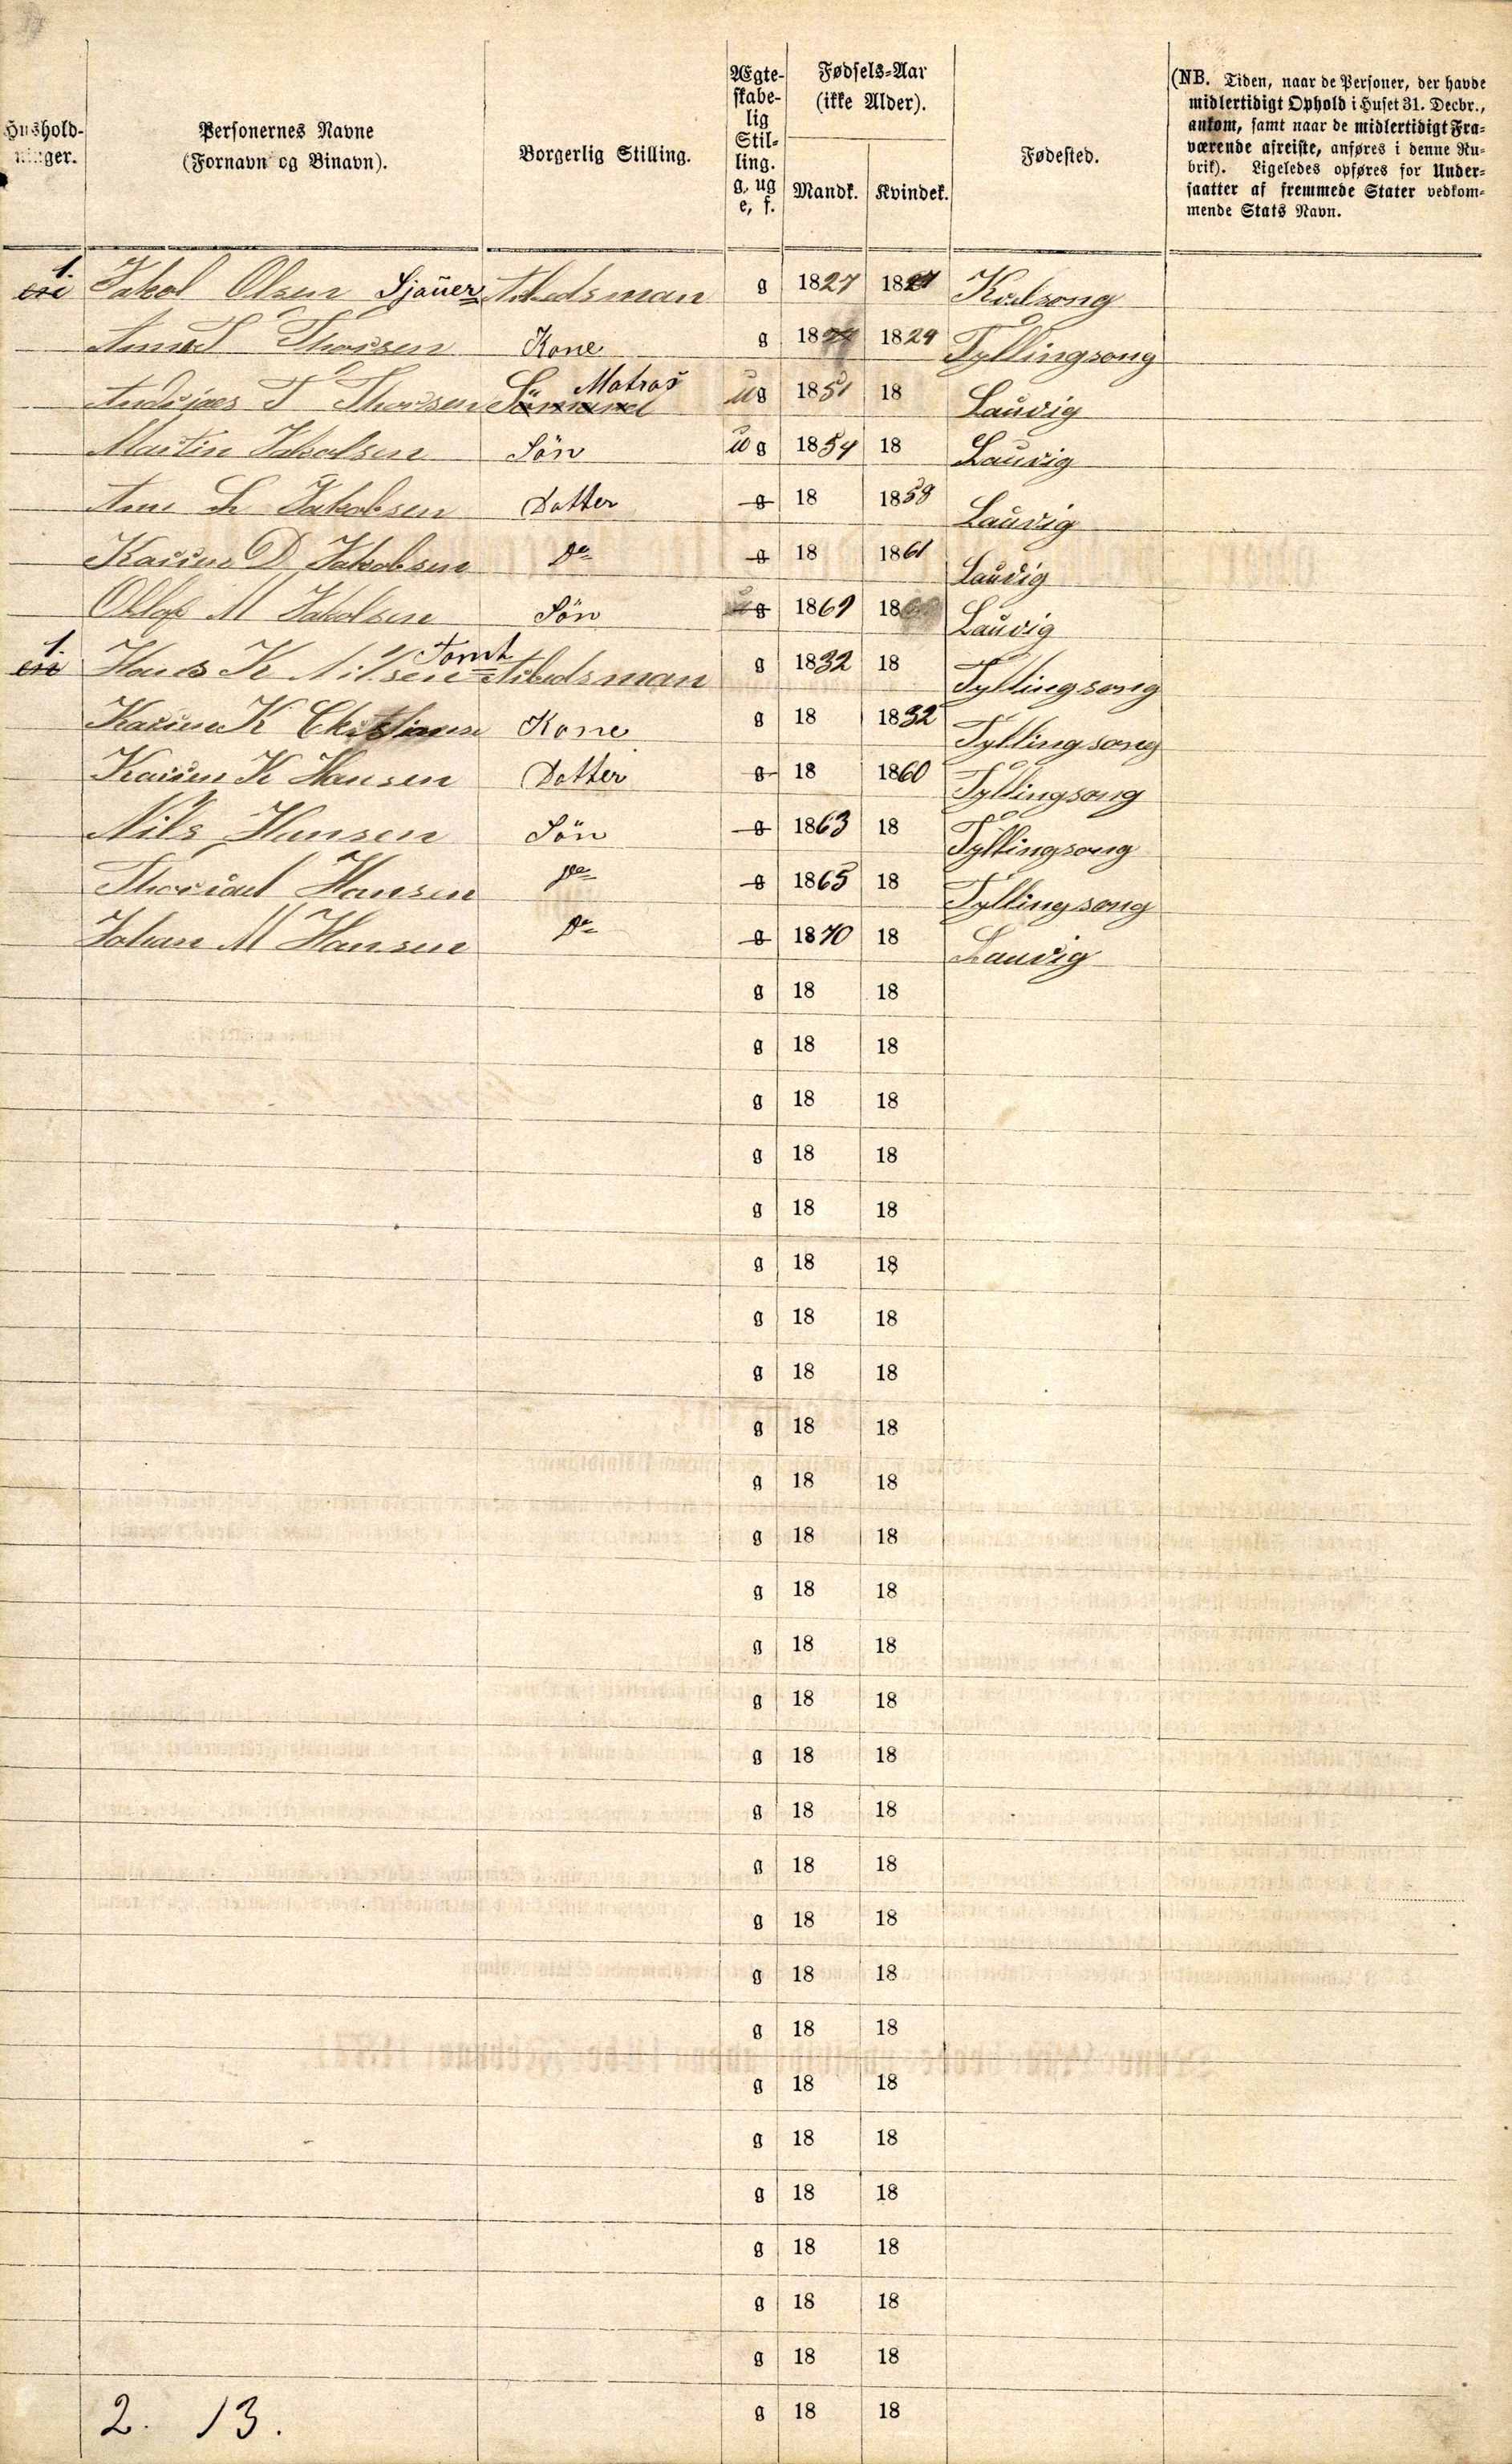 Hushold-
ninger.
Personernes Navne
(Fornavn og Binavn).
Borgerlig Stilling.
Ægte-
skabe-
lig
Stil-
ling.
g, ug
e, f.
Fødsels-Aar
(ikke Alder).
Mandk. Kvindek.
Fødested.
(NB. Tiden, naar de Personer, der havde
midlertidigt Ophold i Huset 31. Decbr.,
ankom, samt naar de midlertidigt Fra-
værende afreiste, anføres i denne Ru-
brik). Ligeledes opføres for Under-
saatter af fremmede Stater vedkom-
mende Stats Navn.
1. Jakob Olsen Sjauer Arbedsman g 1827 18 Kodsong
Anne Thorsen Kone g 18 1829 Tyllingsong
Andreas T Thorsen Matros ug 1851 18 Laurvig
Martin Jakobsen Sön ug 1854 18 Laurvig
Ane Jakobsen Datter g 18 1858 Laurvig
Karine D Jakobsen do g 18 1861 Laurvig
Ollaf M Jakobsen Sön g 1869 18 Laurvig
1. Hans K Nilsen Tomt Arbedsman g 1832 18 Tyllingsong
Karine K Christiansen Kone g 18 1832 Tyllingsong
Karine K Hansen Datter g 18 1860 Tyllingsong
Nils Hansen Sön g 1863 18 Tyllingsong
Hansen do g 1865 18 Tyllingsong
Johan M Hansen do g 1870 18 Laurvig
g 18 18
g 18 18
g 18 18
g 18 18
g 18 18
g 18 18
g 18 18
g 18 18
g 18 18
g 18 18
g 18 18
g 18 18
g 18 18
g 18 18
g 18 18
g 18 18
g 18 18
g 18 18
g 18 18
g 18 18
g 18 18
g 18 18
g 18 18
g 18 18
g 18 18
g 18 18
g 18 18
2. 13.